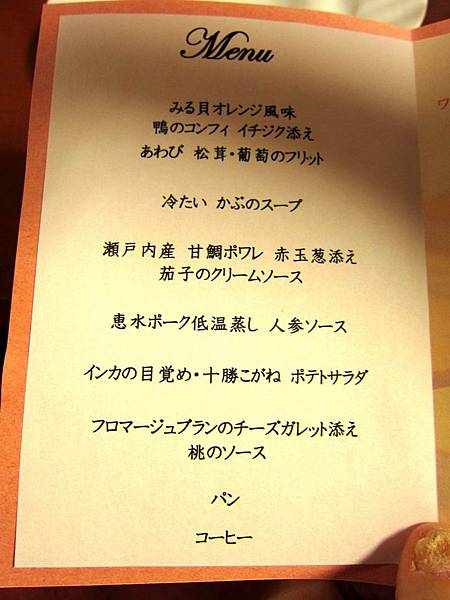 Menu
みる貝オレンジ風味
鴨のコンフィ イチジク添え
あわび 松茸・葡萄のフリット
冷たい かぶのスープ
瀬戸内産 甘鯛ポワレ 赤玉葱添え
茄子のクリームソース
恵水ポーク低温蒸し 人参ソース
インカの目覚め・十勝こがね ポテトサラダ
フロマージュブランのチーズガレット添え
桃のソース
パン
コーヒー
ワ